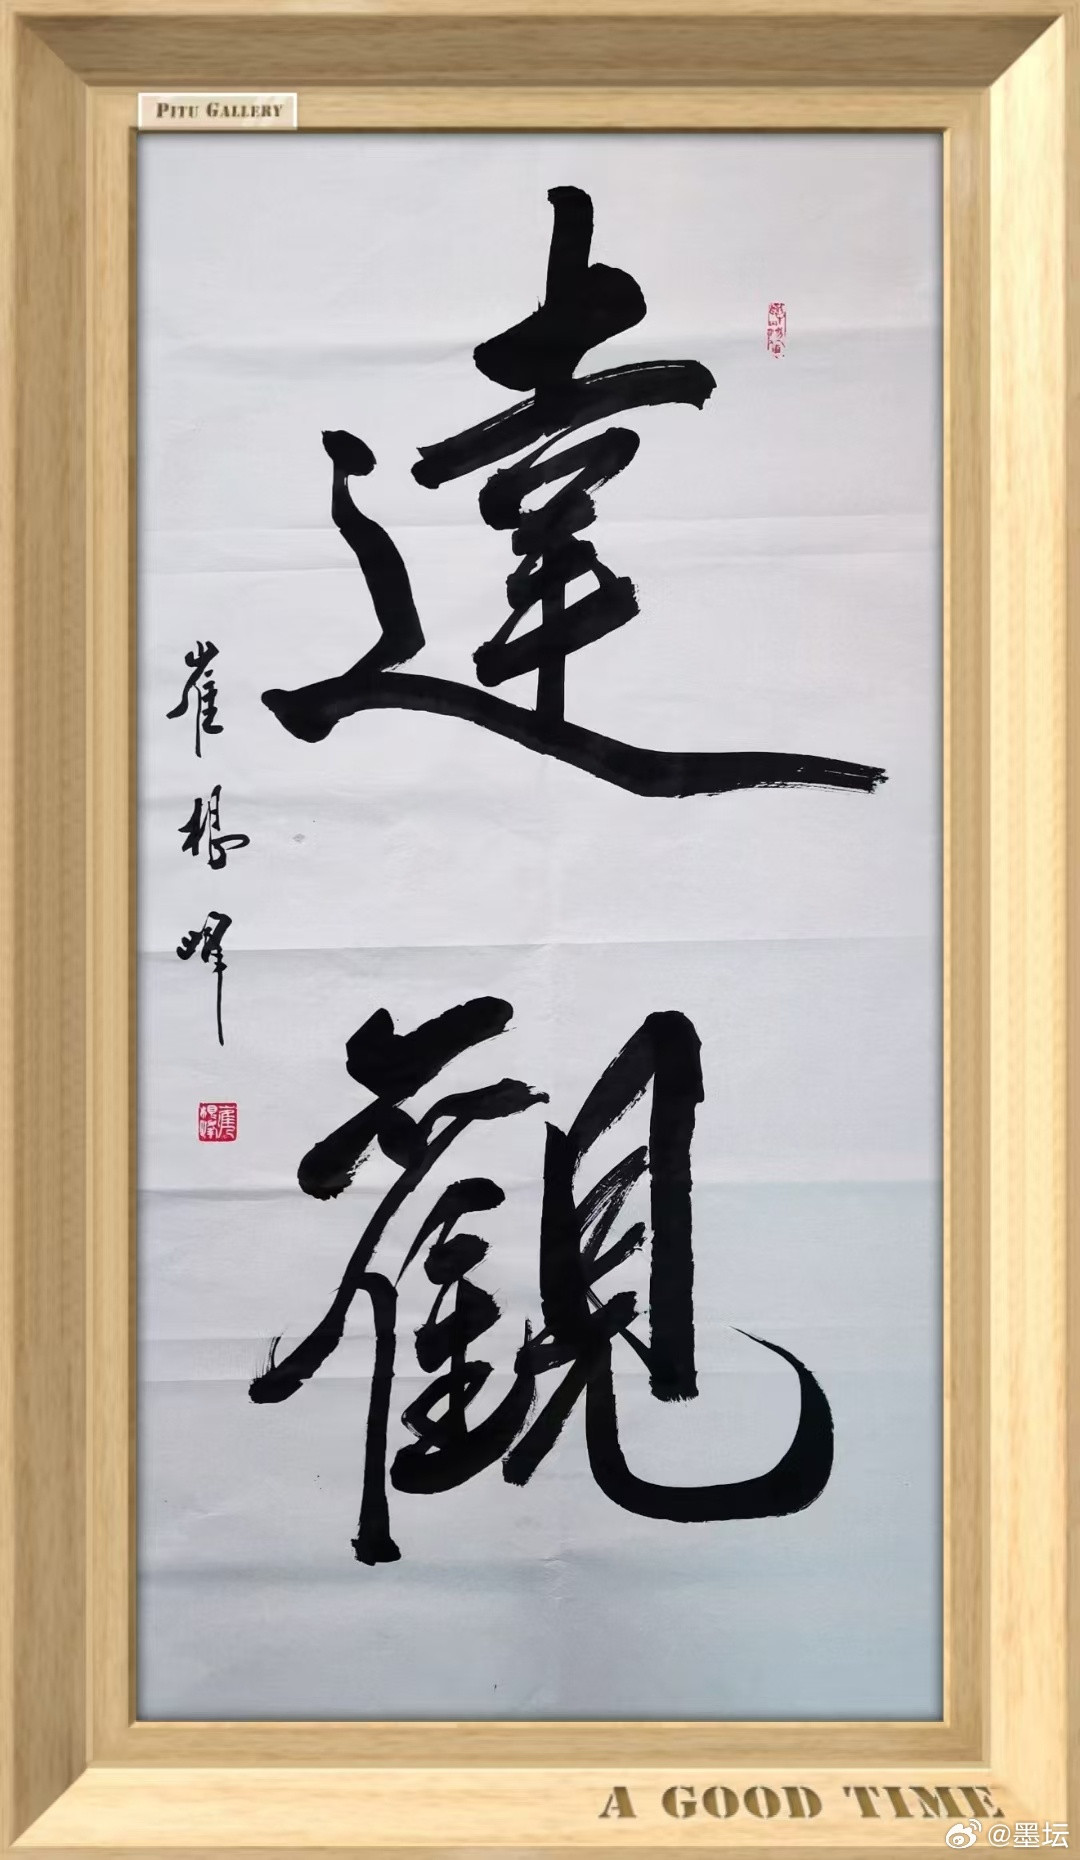 PITU GALLERY
達觀
崔根
A GOOD TIME
@墨坛